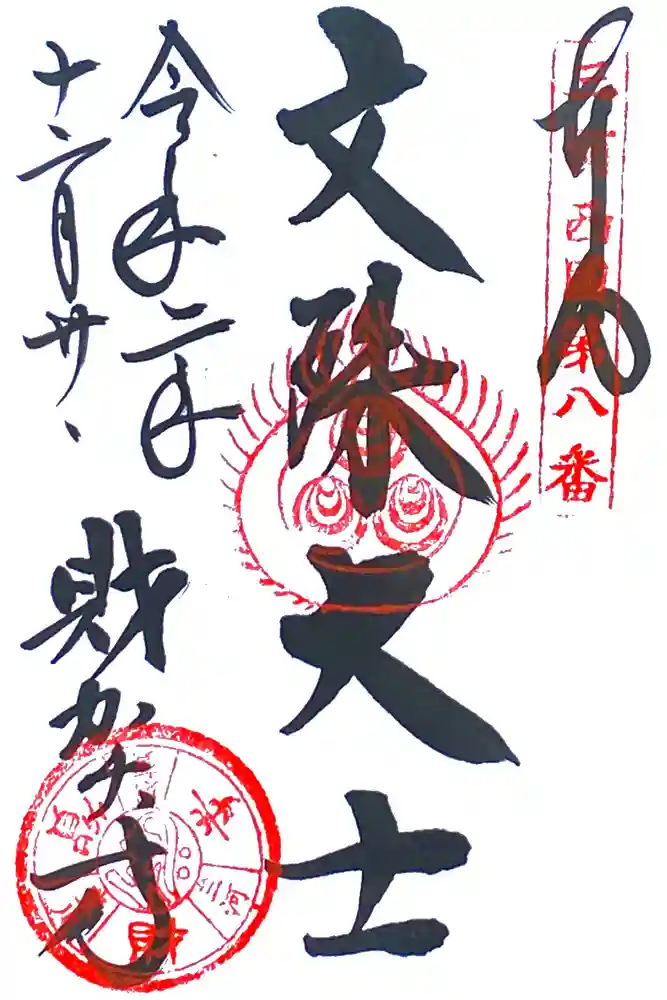 奉拝
三河西国第八番
文殊大士
令和二年
十二月廿日
財賀寺